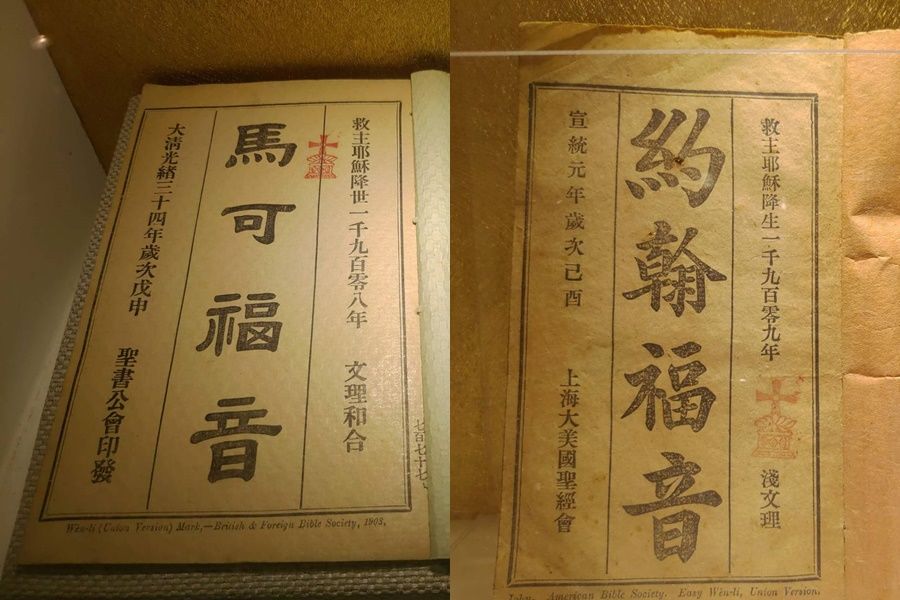 救主耶穌降世一千九百零八年 文理和合
馬可福音
大清光緒三十四年歲次戊申 聖書公會印發
Wên-li (Union Version) Mark,—British & Foreign Bible Society, 1908.
七百七十七
救主耶穌降生一千九百零九年 淺文理
約翰福音
宣統元年歲次己酉 上海大美國聖經會
John. American Bible Society. Easy Wên-li, Union Version.